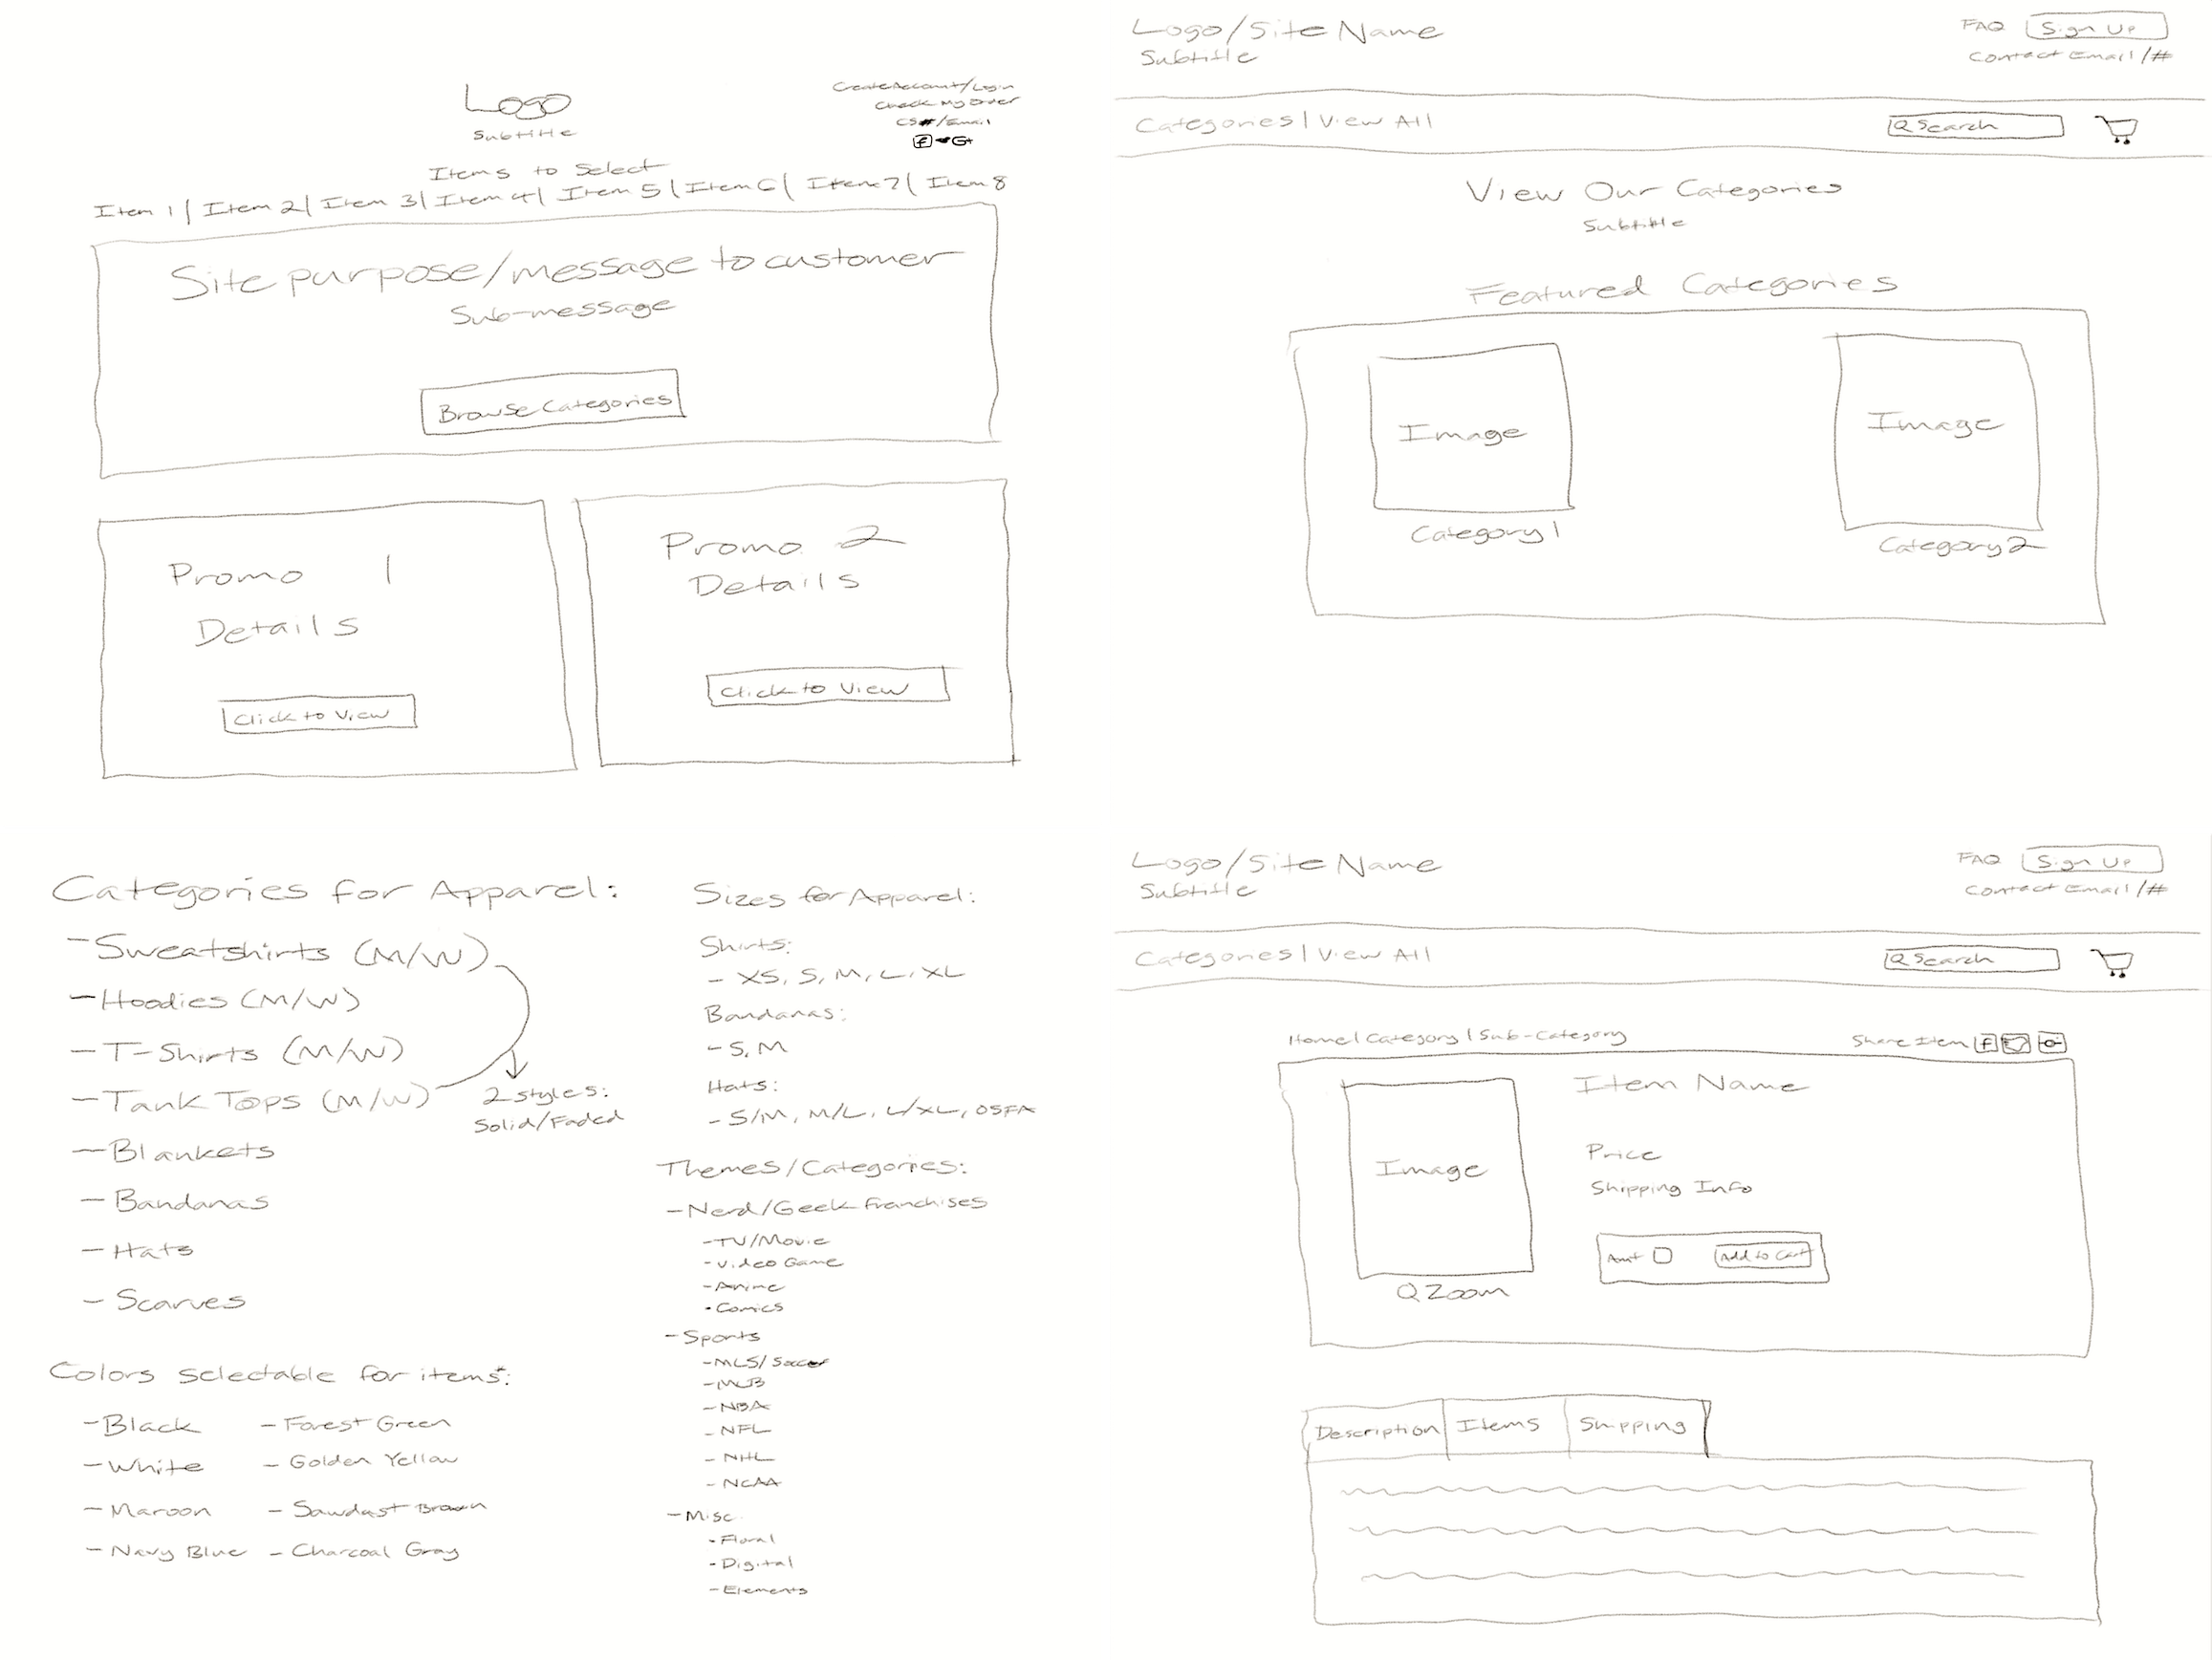 Logo
Subtitle
CreateAccount/Login
Check My Order
CS#/Email
f G+
Items to Select
Item 1 | Item 2 | Item 3 | Item 4 | Item 5 | Item 6 | Item 7 | Item 8
Site purpose/message to customer
Sub-message
Browse Categories
Promo 1
Details
Click to View
Promo 2
Details
Click to View
Logo/Site Name
Subtitle
FAQ Sign Up
Contact Email/#
Categories | View All
Search
View Our Categories
Subtitle
Featured Categories
Image
Category 1
Image
Category 2
Categories for Apparel:
- Sweatshirts (M/W)
- Hoodies (M/W)
- T-Shirts (M/W)
- Tank Tops (M/W)
2 styles:
Solid/Faded
- Blankets
- Bandanas
- Hats
- Scarves
Colors selectable for items*:
- Black
- White
- Maroon
- Navy Blue
- Forest Green
- Golden Yellow
- Sawdast Brown
- Charcoal Gray
Sizes for Apparel:
Shirts:
- XS, S, M, L, XL
Bandanas:
- S, M
Hats:
- S/M, M/L, L/XL, OSFA
Themes/Categories:
- Nerd/Geek Franchises
- TV/Movie
- Video Game
- Anime
- Comics
- Sports
- MLS/Soccer
- MLB
- NBA
- NFL
- NHL
- NCAA
- Misc.
- Floral
- Digital
- Elements
Logo/Site Name
Subtitle
FAQ Sign Up
Contact Email/#
Categories | View All
Search
Home | Category | Sub-Category
Share Item f
Image
Zoom
Item Name
Price
Shipping Info
Amt Add to Cart
Description Items Shipping